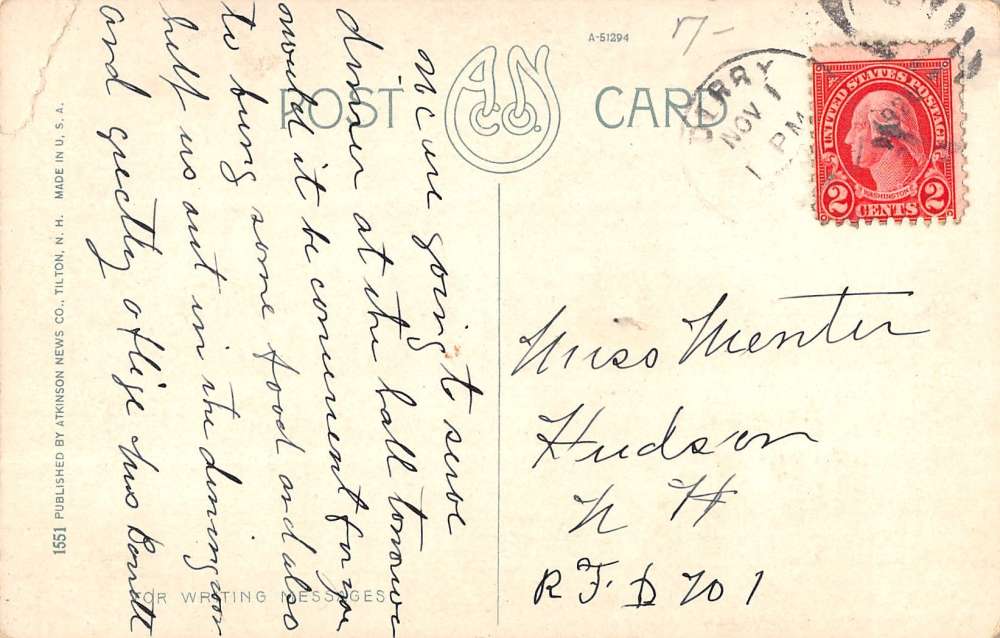 A-51294
7-
POST CARD
A.N. CO.
DERRY
NOV 1
1 PM
UNITED STATES POSTAGE
WASHINGTON
2 CENTS 2
We are going to serve
dinner at the hall tomorow
would it be convenient for you
to bring some food and also
help us out in the diningroom
and greatly oblige Mrs
Miss Menter
Hudson
N H
R F D No 1
FOR WRITING MESSAGES
1551 PUBLISHED BY ATKINSON NEWS CO., TILTON, N. H. MADE IN U. S. A.